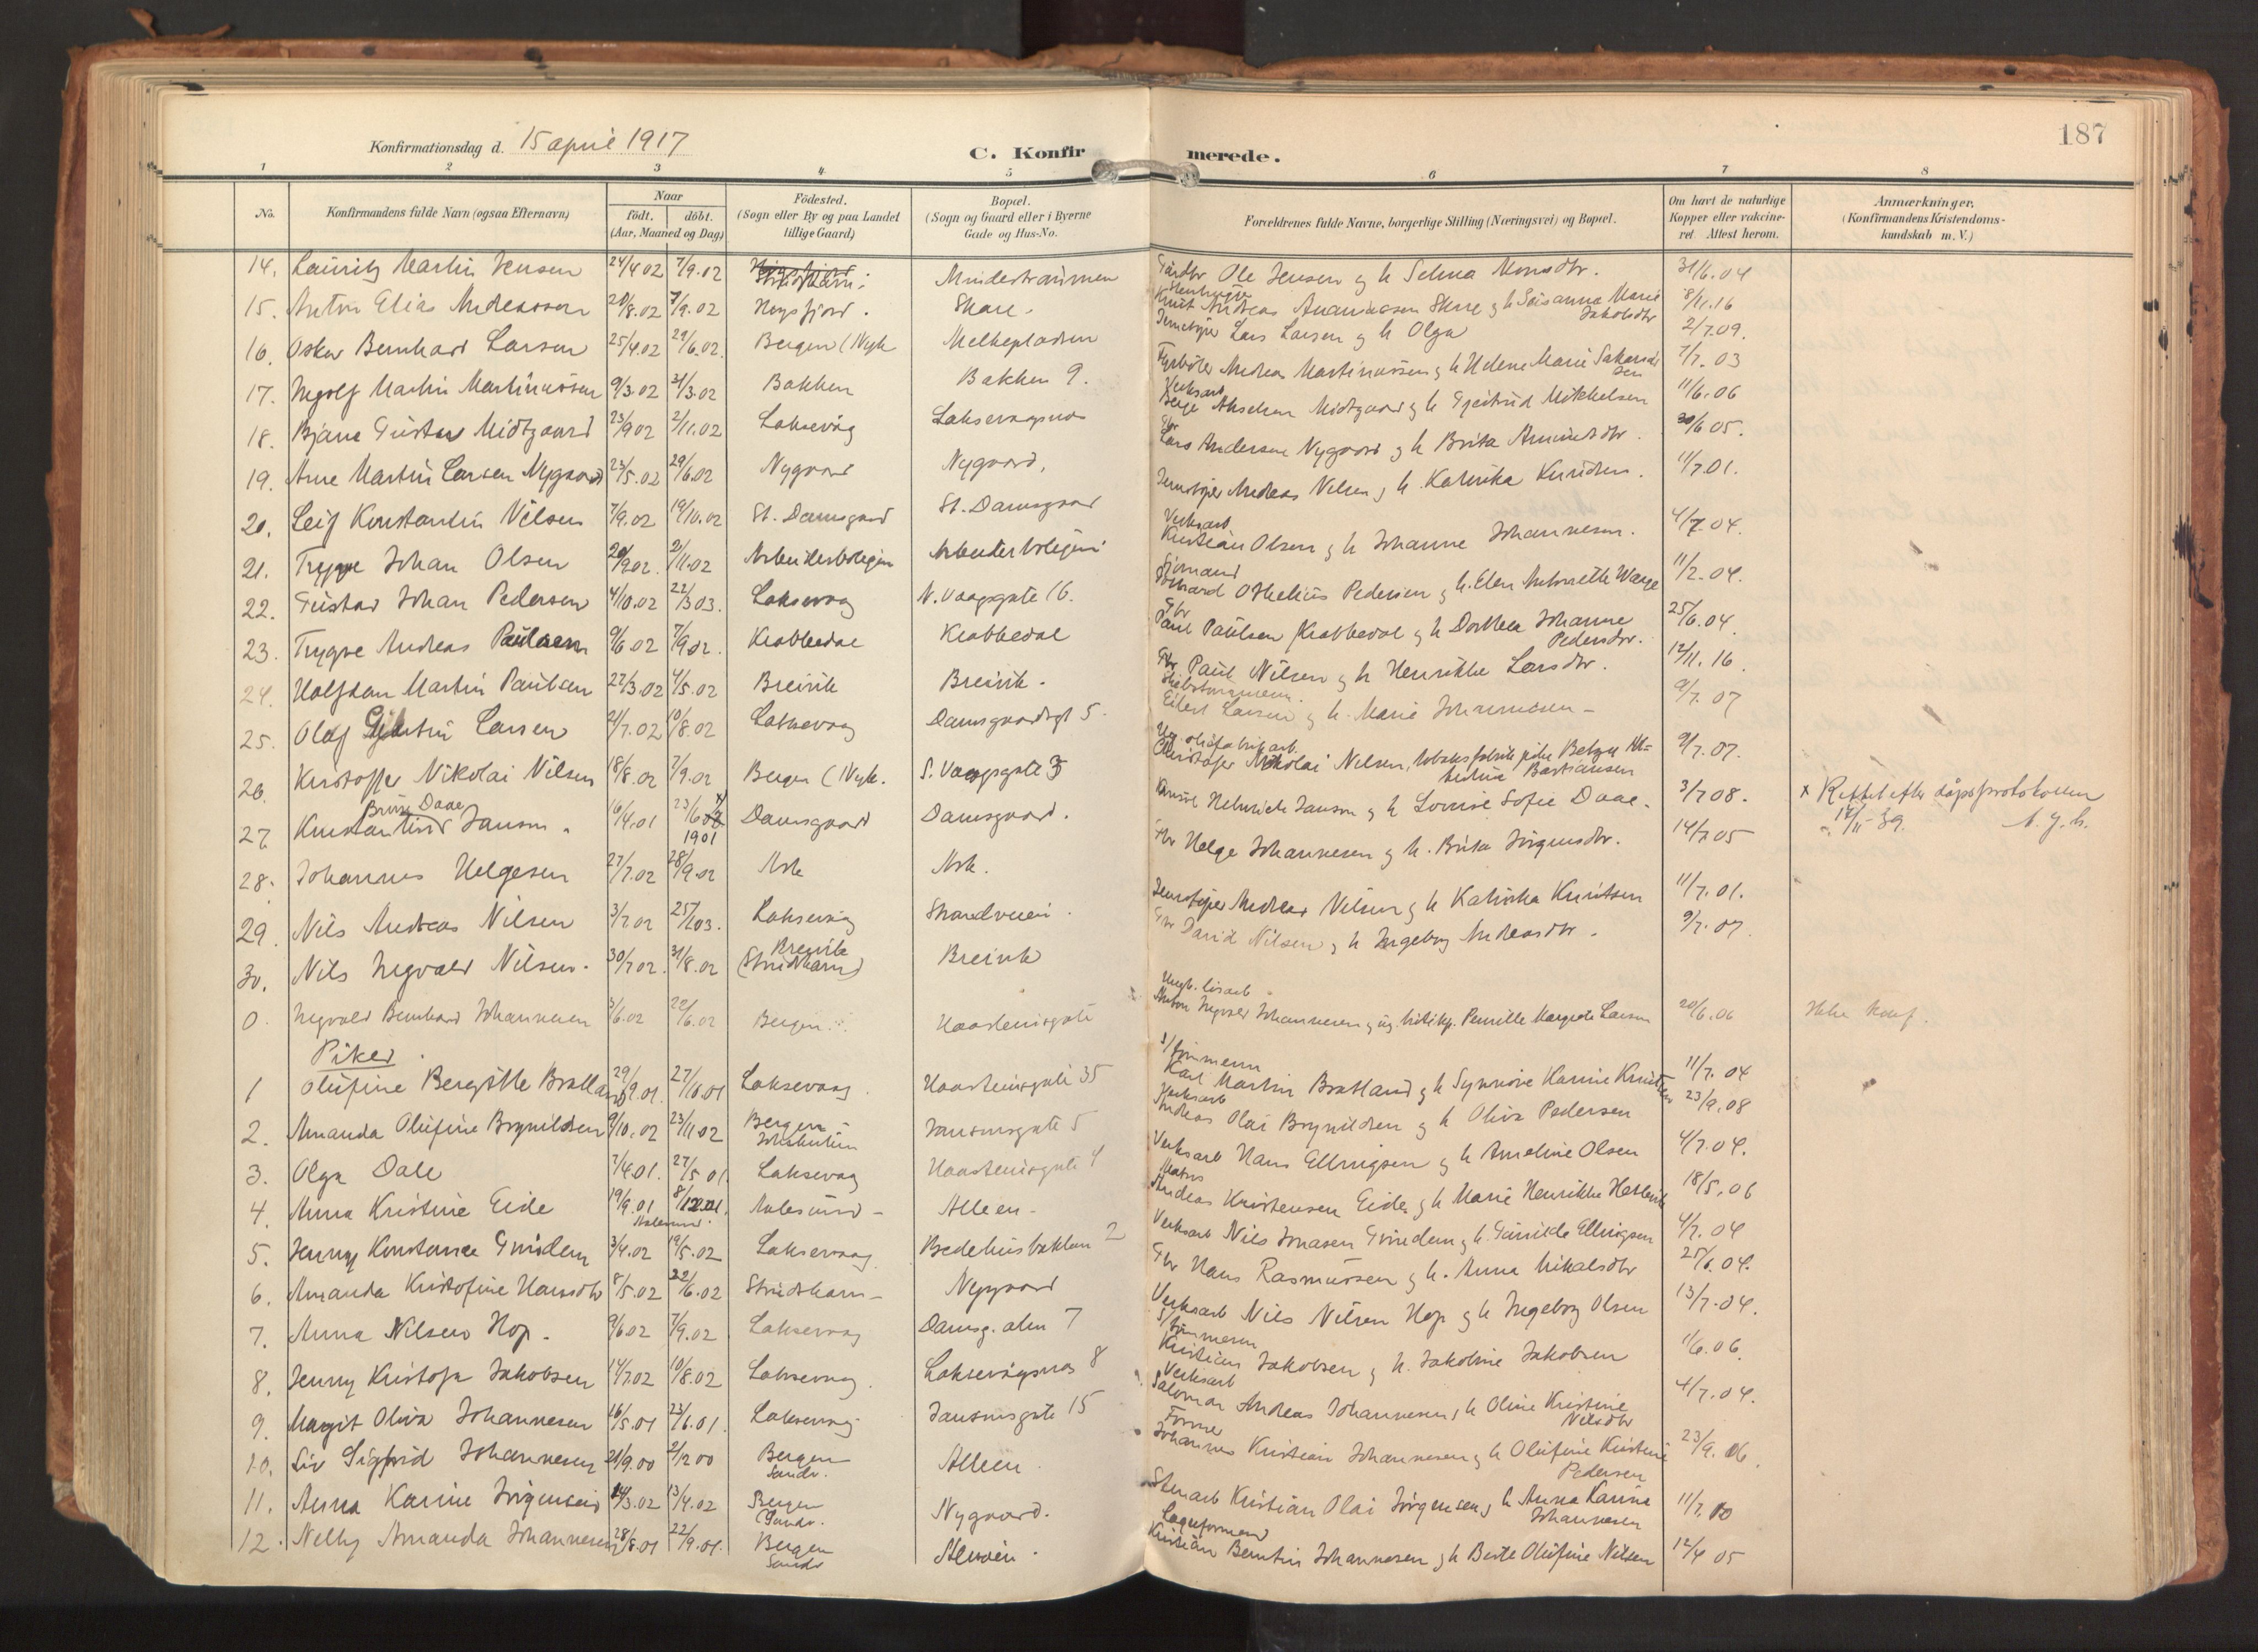 Konfirmationsdag d. 15 april 1917
C. Konfirmerede.
187
1 2 3 4 5 6 7 8
No.
Konfirmandens fulde Navn (ogsaa Efternavn)
Naar
födt. döbt.
(Aar, Maaned og Dag)
Födested.
(Sogn eller By og paa Landet
tillige Gaard)
Bopæl.
(Sogn og Gaard eller i Byerne
Gade og Hus-No.
Forældrenes fulde Navne, borgerlige Stilling (Næringsvei) og Bopæl.
Om havt de naturlige
Kopper eller vakcine-
ret. Attest herom.
Anmærkninger.
(Konfirmandens Kristendoms-
kundskab m. V.)
14. Lauritz Martin Jensen 24/4 02 7/9.02 Ole Jensen og h Selma Monsdtr. 31/6.04
15. Anton Elias Andreassen 20/8.02 7/9.02 Høgsfjord. Skare. Knut Andreas Skare og h Susanna Marie Jakobsdtr 8/11.16
16. Oskar Bernhard Larsen 25/4.02 29/6.02. Bergen (Nyk Melkepladsen Lars Larsen og h Olga 2/7.09.
17. Ingolf Martin Martinussen 9/3.02 31/3.02 Bakken Bakken 9. Fyrbøter Andreas Martinussen og h Helene Marie 7/7.03
18. Bjarne Gustav Midtgaard 23/9 02 2/11.02 Laksevåg Laksevagsnes Verksarb Midtgaard og h Gjertrud Mikkelsen 11/6.06
19. Arne Martin Larsen Nygaard 23/5.02 29/6.02 Nygaard Nygaard. Gbr Lars Andersen Nygaard og h Brita Amundsdtr. 30/6 05.
20. Leif Konstantin Nilsen 7/9.02 19/10.02 St. Damsgaard St. Damsgaard Andreas Nilsen og h. Katinka Knudsen. 11/7.01.
21. Trygve Johan Olsen 20/9.02. 2/11.02 Arbeiderboligen Arbeiderboligen Verksarb. Kristian Olsen og h Johanne Johannesen. 4/7.04.
22. Gustav Johan Pedersen 4/10.02 22/3 03. Laksevaag N. Vaagsgate 16. Sjømand Othelius Pedersen og h. Elen Antonette Waage 11/2.04.
23. Trygve Andreas Paulsen 9/6 02 7/9 02. Krabbedal Krabbedal Gbr Paul Paulsen Krabbedal og h Dorthea Johanne Pedersdtr. 25/6.04.
24. Halfdan Martin Paulsen 27/3.02 4/5.02 Breivik Breivik. Gbr Paul Nilsen og h Henrikke Larsdtr. 12/11.16.
25. Olaf Larsen 21/7.02 10/8.02 Laksevaag Damsgaardsgt 5. Skibstømmerm. Eilert Larsen og h. Marie Johannesen - 9/7.07
26. Kristoffer Nikolai Nilsen 18/8.02 7/9.02 Bergen (Nyk. S. Vaagsgate 3 Kristofer Nikolai Nilsen, Bastiansen 9/7.07.
27. Konstantin Bruun Daae Janson. 16/4.01 23/6 02 x) 1901 Damsgaard Damsgaard. Konsul Helmich Janson og h Louise Sofie Daae. 3/7 08. x Rettet efter dåpsprotokollen 17/11-39.
28. Johannes Helgesen 27/7.02 28/9.02 Ask Ask. Gbr Helge Johannesen og h. Brita Jörgensdtr. 14/7.05
29. Nils Andreas Nilsen 3/7 02 25/1 03. Laksevåg Strandveien. Andreas Nilsen og h Katinka Knutsen 11/7.01.
30. Nils Ingvald Nilsen. 30/7 02. 31/8.02 Breivik (Strudshavn) Breivik Gbr David Nilsen og h Ingeborg Andreasdtr. 9/7.07.
0. Ingvald Bernhard Johannesen 3/6.02 22/6.02 Bergen Haasteinsgate Anton Ingvald Johannesen og Pernille Margrete Larsen 20/6.06 Ikke konf.
Piker.
1 Olufine Bergitte Bratland 29/9.01. 27/10.01 Laksevaag. Haasteinsgate 35 S/tømmerm Karl Martin Bratland og h Synnøve Karine Knutsen 11/7.04
2. Amanda Olufine Brynildsen 9/10.02 23/11 02 Bergen - Johskirken Jansonsgate 5 Verksarb Andreas Olai Brynildsen og h Oliva Pedersen 23/9.08
3. Olga Dale 7/4 01. 27/5 01. Laksevaag Haasteinsgate 4 Verksarb Hans Ellingsen og h Anneline Olsen 4/7.04.
4. Anna Kristine Eide 19/9.01 8/12.01. Aalesund - Alleen - Matros Andreas Kristensen Eide og h Marie Henrikke 18/5.06
5. Jenny Konstance Grinden 3/4.02 19/5.02 Laksevaag Bedehusbakken 2 Verksarb Nils Jonasen Grinden og h. Gunilde Ellingsen 4/7.04
6. Amanda Kristofine Hansdtr 8/5.02 22/6.02 Strudshavn - Nygaard Gbr Hans Rasmussen og h. Anna Mikalsdtr 25/6.04.
7. Anna Nilsen Hop. 9/6.02 7/9.02 Laksevaag Damsg. alm 7 Verksarb Nils Nilsen Hop og h Ingeborg Olsen 13/7.04.
8. Jenny Kristofa Jakobsen 14/7.02 10/8.02 Laksevaag. Laksevågsnes 8 S/tømmerm Kristian Jakobsen og h. Jakobine Jakobsen 11/6.06.
9. Margit Oliva Johannesen 16/5.01 23/6.01. Laksevaag Jansonsgate 15 Verksarb Salomon Andreas Johannesen og h Oline Kristine Nilsdtr 4/7.04.
10. Liv Sigfrid Johannesen 21/9.00 2/12 00 Bergen Sandv. Alleen. Former Johannes Kristian Johannesen og h Olufine Kristine Pedersen 23/9.06.
11. Anna Karine Jörgensen 14/3.02 13/4.02 Bergen Sandv. Nygaard. Stenarb Kristian Olai Jörgensen og h Anna Karina Johannesen 11/7.10
12. Nelly Amanda Johannesen 28/8.01 22/9.01. Bergen Sandv Alleen. Lagerformand Kristian Berntin Johannesen og h Berte Olufine Nilsen 12/4 05